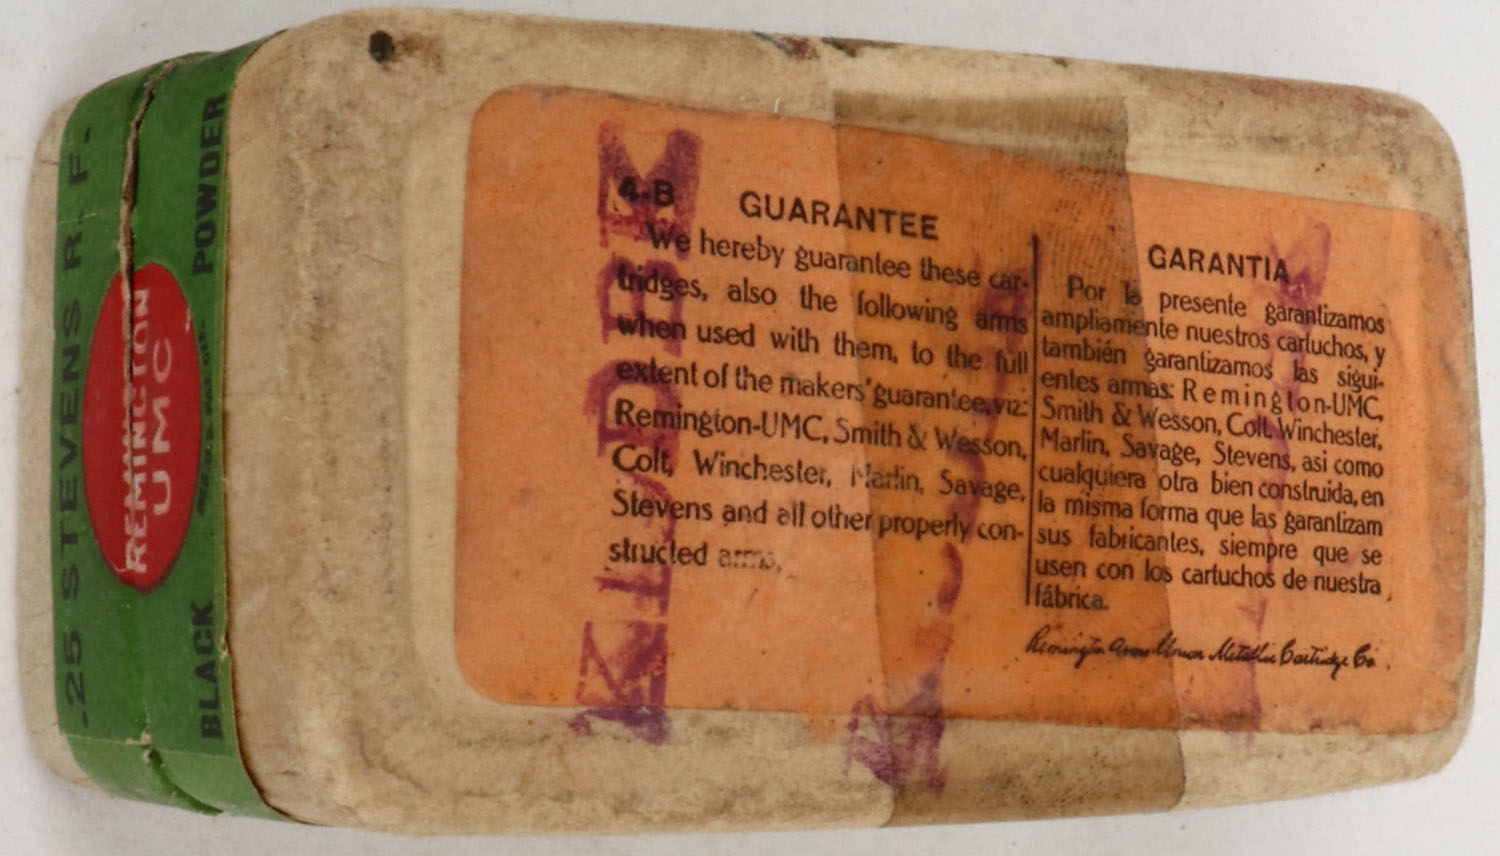 .25 STEVENS R. F.
REMINGTON
UMC
BLACK POWDER
4-B
GUARANTEE
We hereby guarantee these car-
tridges, also the following arms
when used with them, to the full
extent of the makers' guarantee, viz:
Remington-UMC, Smith & Wesson,
Colt, Winchester, Marlin, Savage,
Stevens and all other properly con-
structed arms.
GARANTIA
Por la presente garantizamos
ampliamente nuestros cartuchos, y
también garantizamos las sigui-
entes armas: Remington-UMC,
Smith & Wesson, Colt, Winchester,
Marlin, Savage, Stevens, asi como
cualquiera otra bien construida, en
la misma forma que las garantizam
sus fabricantes, siempre que se
usen con los cartuchos de nuestra
fábrica.
Remington Arms Union Metallic Cartridge Co.